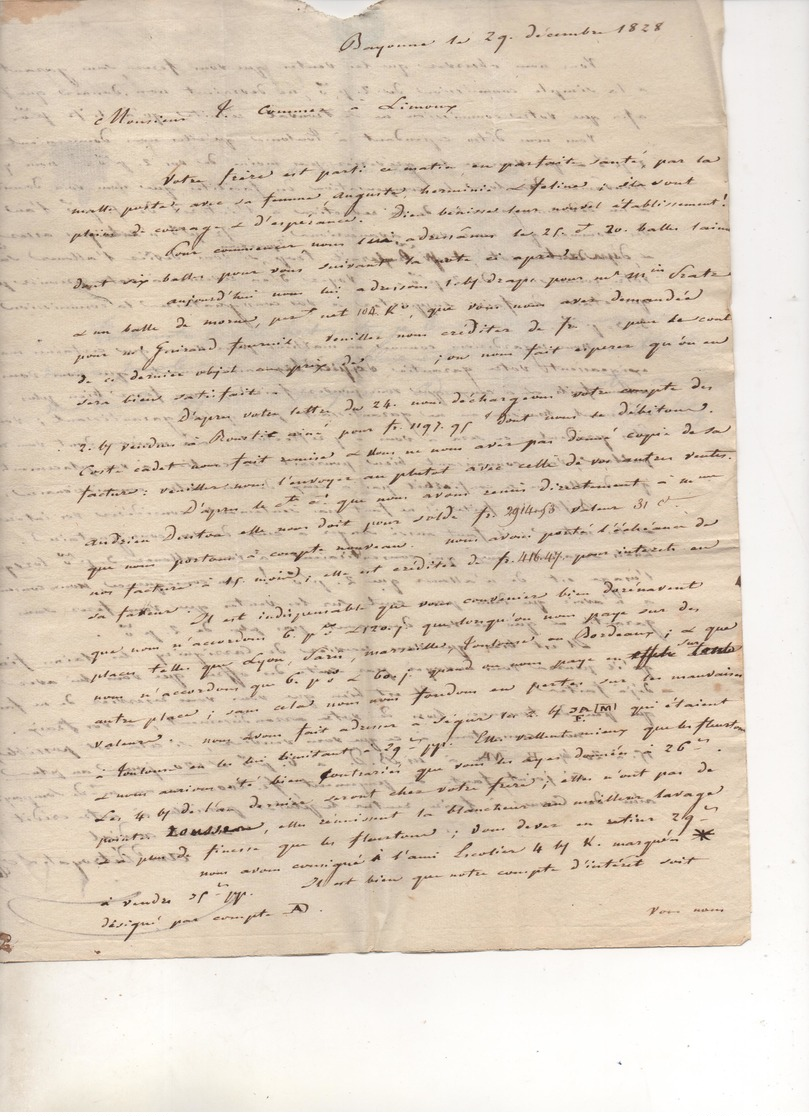 Bayonne le 29. décembre 1828
Monsieur J. Commes à Limoux
Votre frère est parti ce matin en parfaite santé, par la
malle poste, avec sa femme, auguste herminie & feline; ils sont
pleins de courage & d'espérance. Dieu bénisse leur nouvel établissement!
Pour commencer nous lui adressâmes le 25. Ct 20. balles laine
dont six balles pour vous suivant la note ci après.
aujourd'hui nous lui adressons 1. bll draps pour mr
& un balle de morue, pesnt net 104. Ko, que vous nous avez demandée
pour mr Guiraud fournil. veuillez nous créditer de fr pour le cout
de ce dernier objet au prix de ; on nous fait espérer qu'on en
sera bien satisfait.
D'après votre lettre du 24. nous déchargeons votre compte des
2. bll vendues à Roustit ainé pour fr. 1197.95 dont nous le débitons.
Coste cadet nous fait remise & vous ne nous avez pas donné copie de sa
facture: veuillez nous l'envoyer au plutot avec celle de vos autres ventes.
D'après le cte ct que nous avons remis directement à mme
andrieu elle nous doit pour solde fr. 2914.53 valeur 31 ct
que nous portons à compte nouveau. nous avons porté l'échéance de
nos facture à 15. mois, elle est créditée de fr. 416.45. pour interets en
sa faveur. Il est indispensable que vous conveniez bien dorénavant
que nous n'accordons 6. p% & 120. j. que lorsqu'on nous paye sur des
places telles que Lyon, Paris, marseille, Toulouse, ou Bordeaux; & que
nous n'accordons que 6. p% & 60. j. quand on nous paye en sur
autre place; sans cela nous nous fondons en pertes sur les mauvaises
valeurs. nous avons fait adresser à Segur les 2. bll JA/M/F. qui étaient
à Toulouse en les lui limitant à 29 pp. Elles vallent mieux que les fleurtons
& nous aurions été bien contrariés que vous les ayez données à 26
Les 4. bll de l'an dernier seront chez votre frère; elles n'ont pas de
pointes rousses, elles réunissent la blancheur au meilleur lavage
& à plus de finesse que les fleurtons; vous devez en retirer 29
nous avons consigné à l'ami Escolier 4 bll K. marquées *
à vendre 25 pp. Il est bien que notre compte d'intérêt soit
désigné par compte A.
vous nous